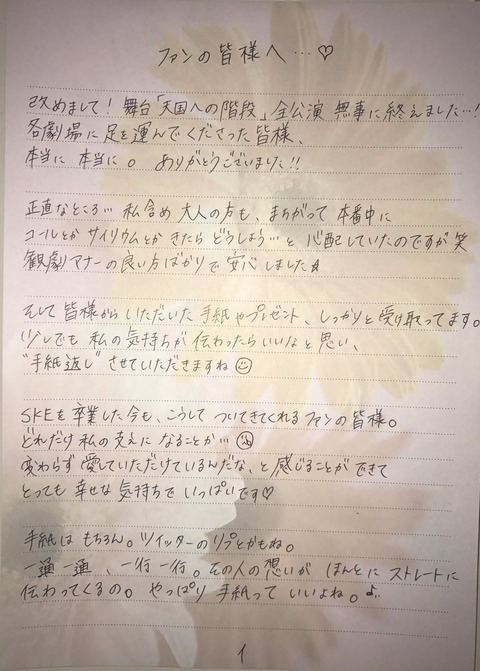 ファンの皆様へ…♡
改めまして！舞台「天国への階段」全公演 無事に終えました…！
各劇場に足を運んでくださった皆様、
本当に 本当に。ありがとうございました!!
正直なところ… 私含め 大人の方も、まちがって 本番中に
コールとか サイリウムとか きたら どうしよう…と 心配していたのですが 笑
観劇マナーの良い方ばかりで 安心しました☆
そして 皆様から いただいた 手紙や プレゼント、しっかりと 受け取ってます。
少しでも 私の気持ちが 伝わったらいいなと思い、
“手紙返し” させていただきますね☺
SKEを 卒業した今も、こうして ついてきてくれる ファンの皆様。
どれだけ 私の支えに なることか…
変わらず 愛していただけているんだな、と 感じることができて
とっても 幸せな気持ちで いっぱいです♡
手紙は もちろん。ツイッターのリプとかもね。
一通一通、一行一行。その人の想いが ほんとに ストレートに
伝わってくるの。 やっぱり 手紙って いいよね。♪
1